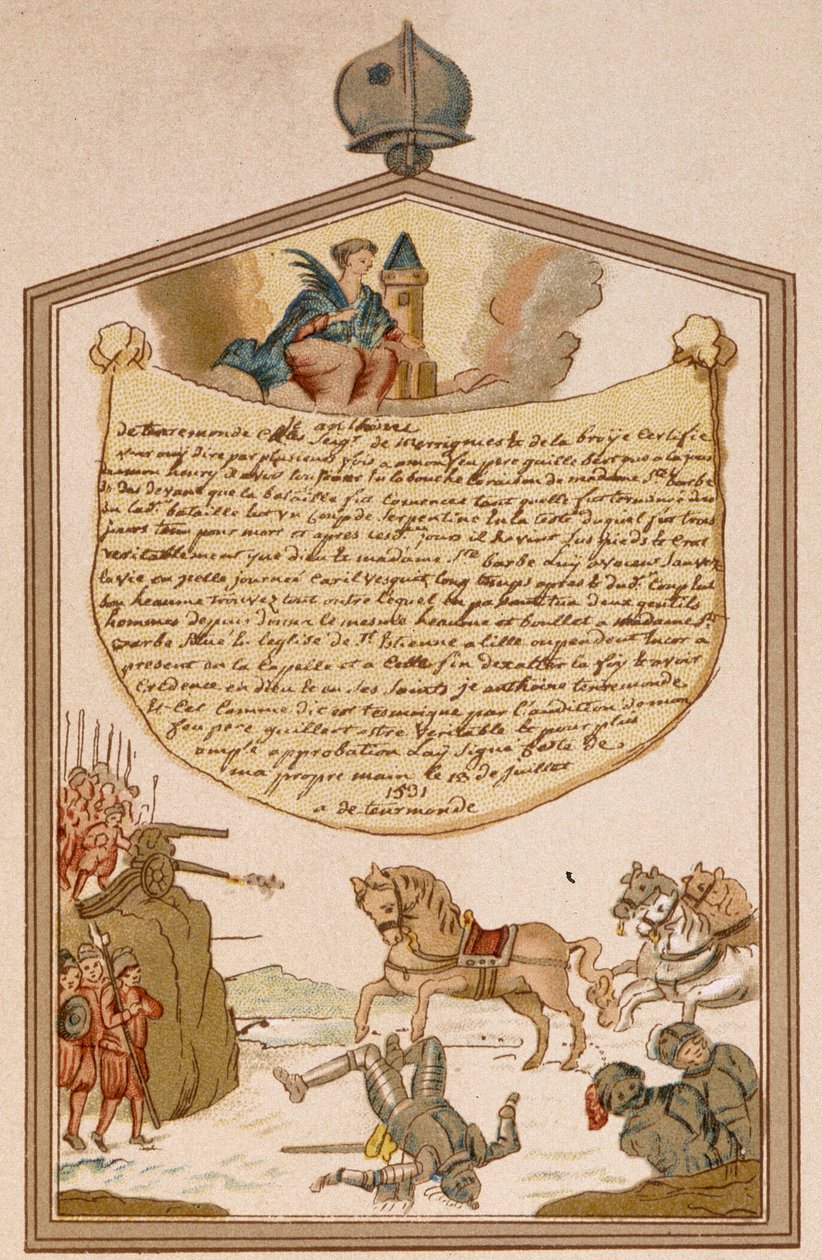 je anthoine
de tenremonde Esc. Seigr. de Merrignies & de la broÿe Certifie
avoir ouy dire par plusieurs fois a mon feu pere quille
avoir en la bouche loraison de madame Ste barbe
devant que la bataille fut
bataille Eut vn Coup de Serpentine En la teste duquel fut trois
jours tenu pour mort et apres jours il Revint Sus pieds & Erat
veritablement que dieu & madame Ste barbe Luÿ avoient Sauvez
la vie en jcelle journeé Caril vesquit long temps apres & dud. Coup Eut
son heaume trouvez tout outre lequel En passant tua deux gentils
hommes depuis donna le mesme heaume et boullet a Madame Ste
barbe En leglise de St. Estienne a lille ou pendent Encor a
present en la Cappelle et a Celle fin dexalter la foÿ & avoir
Credence en dieu & en Ses Saints je anthoine tenremonde
Et Cel Comme dit est tesmoigne par l'audition de mon
feu pere quillert estre veritable & pour plus
ample approbation Laÿ Signe Ceste de
ma propre main le 18 de Juillet
1531
a de tenrmonde